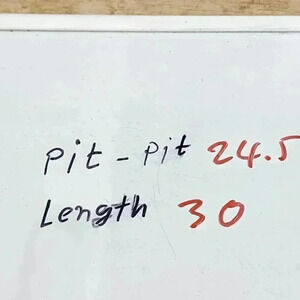 Pit - Pit 24.5
Length 30